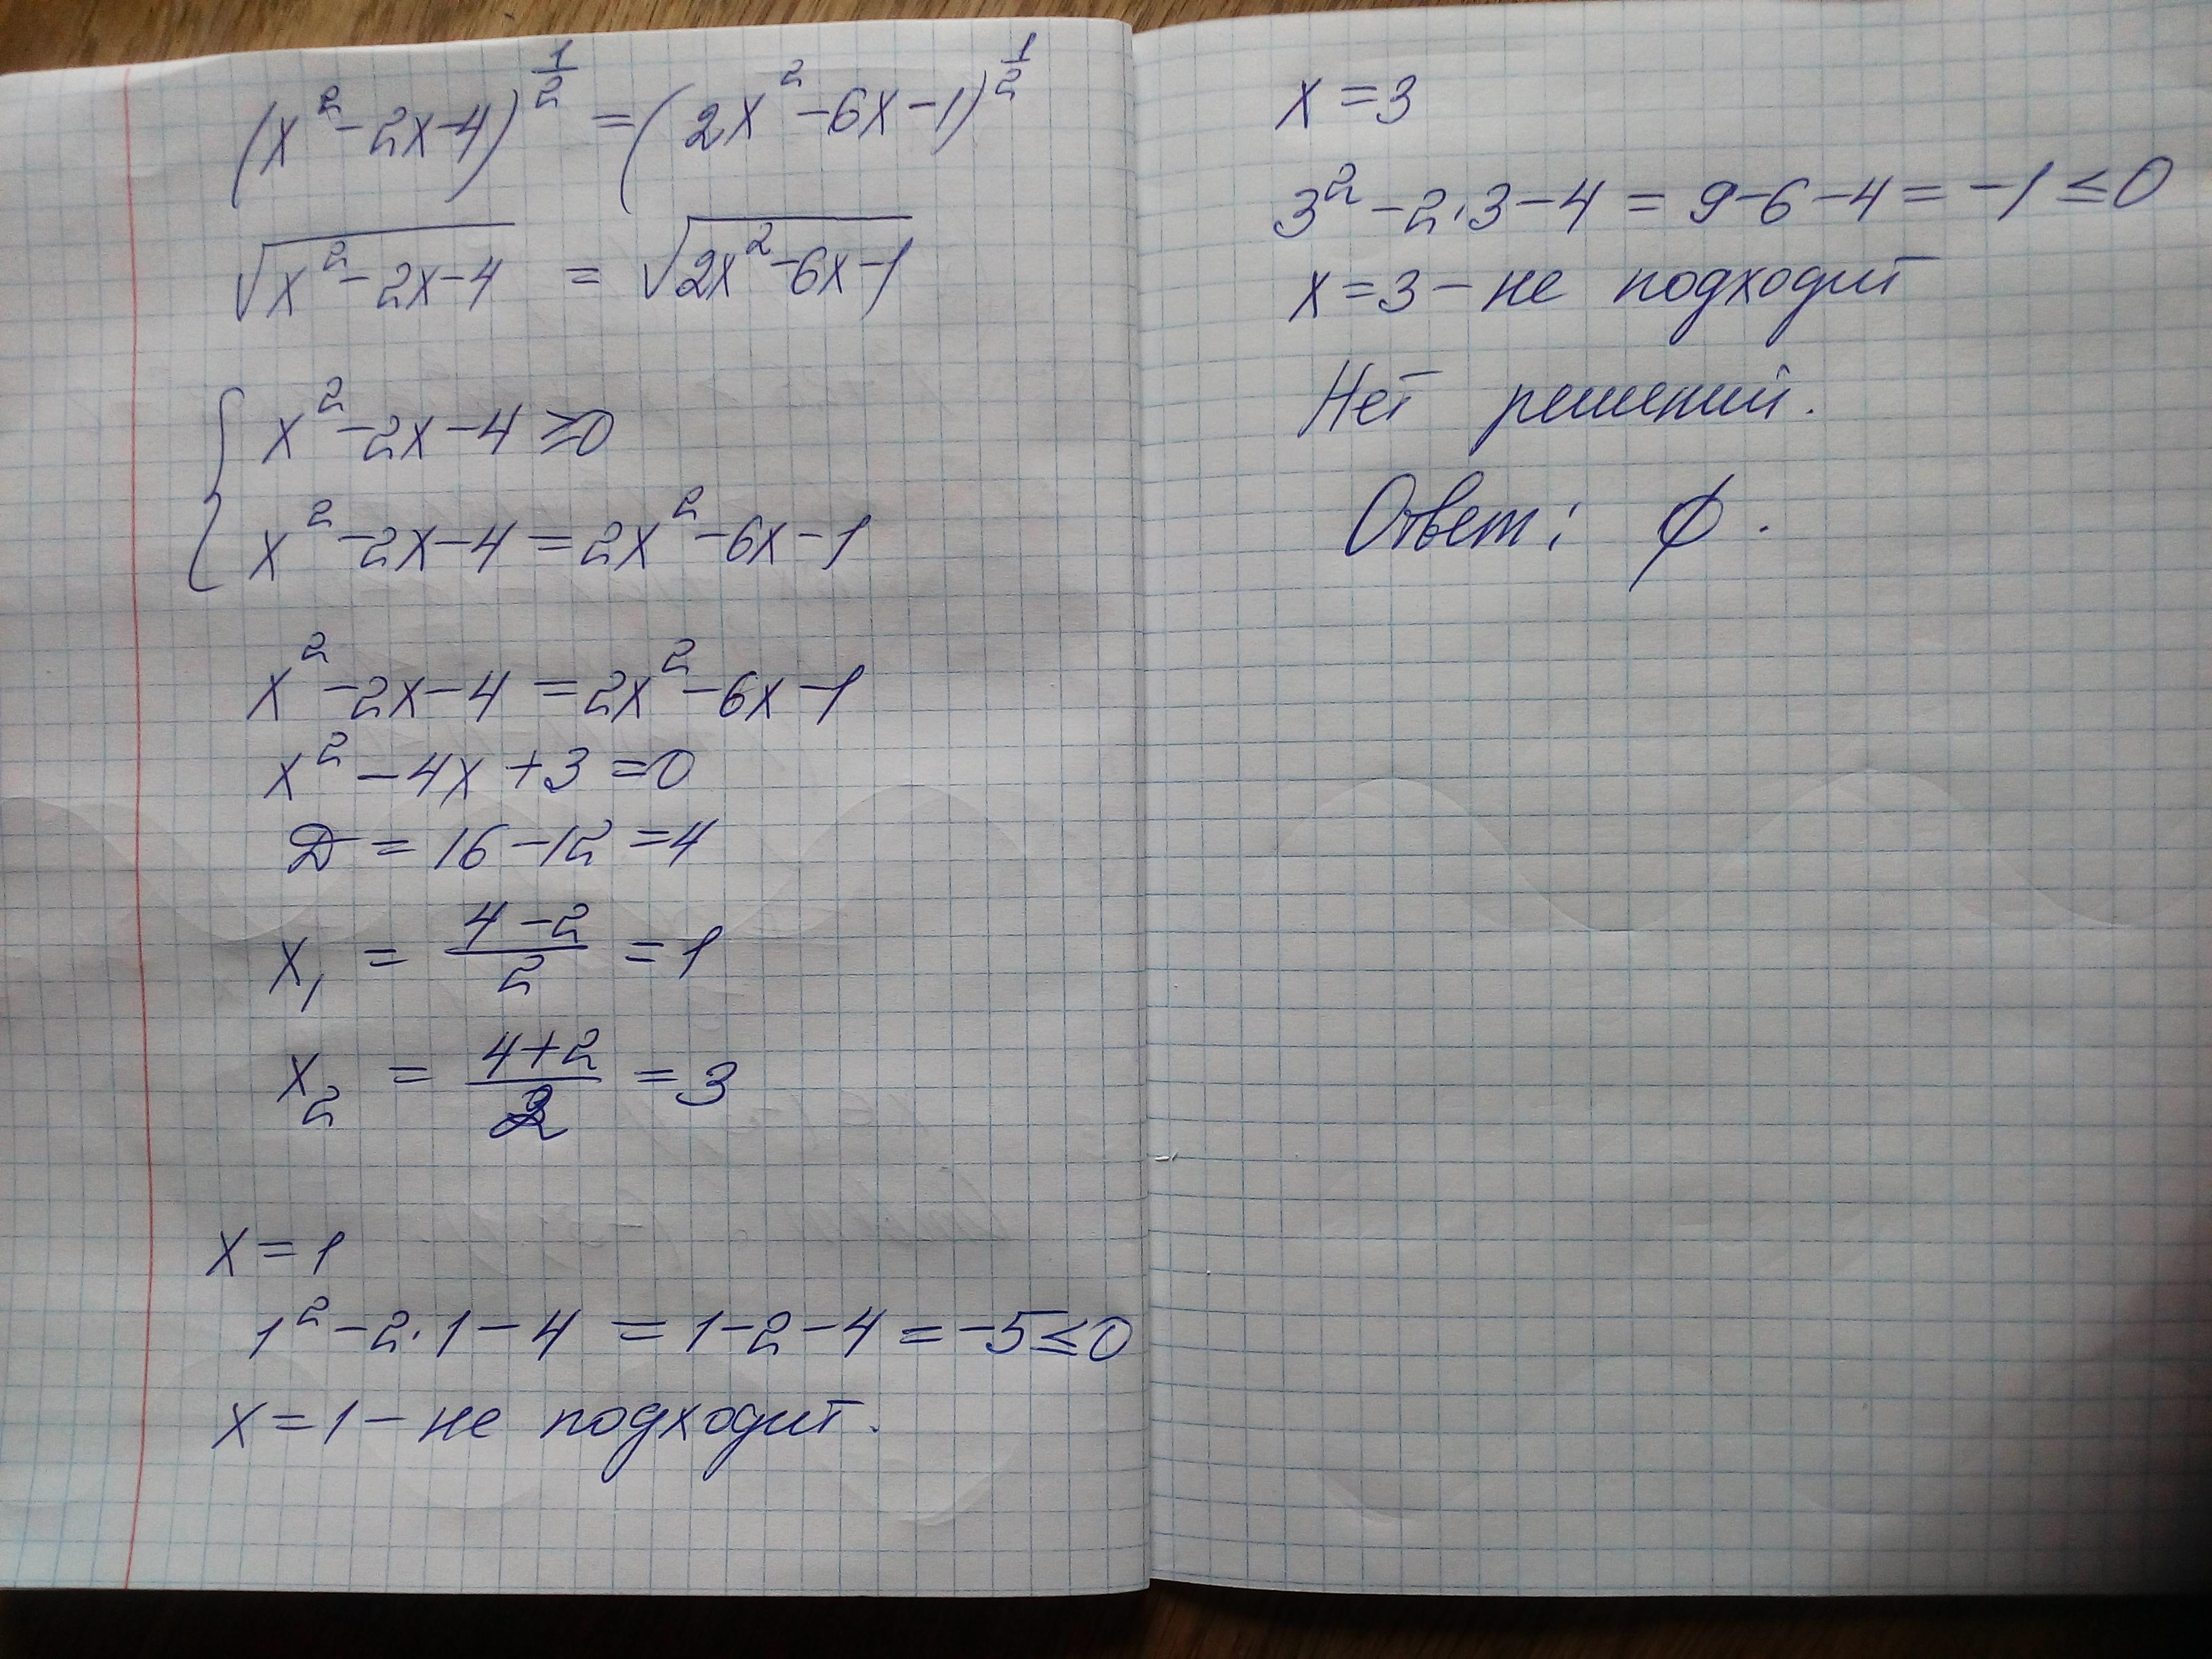 (x² - 2x - 4)^(1/2) = (2x² - 6x - 1)^(1/2)
√(x² - 2x - 4) = √(2x² - 6x - 1)
{ x² - 2x - 4 ≥ 0
x² - 2x - 4 = 2x² - 6x - 1
x² - 2x - 4 = 2x² - 6x - 1
x² - 4x + 3 = 0
D = 16 - 12 = 4
x₁ = (4 - 2)/2 = 1
x₂ = (4 + 2)/2 = 3
x = 1
1² - 2·1 - 4 = 1 - 2 - 4 = -5 ≤ 0
x = 1 - не подходит.
x = 3
3² - 2·3 - 4 = 9 - 6 - 4 = -1 ≤ 0
x = 3 - не подходит
Нет решений.
Ответ: ∅.